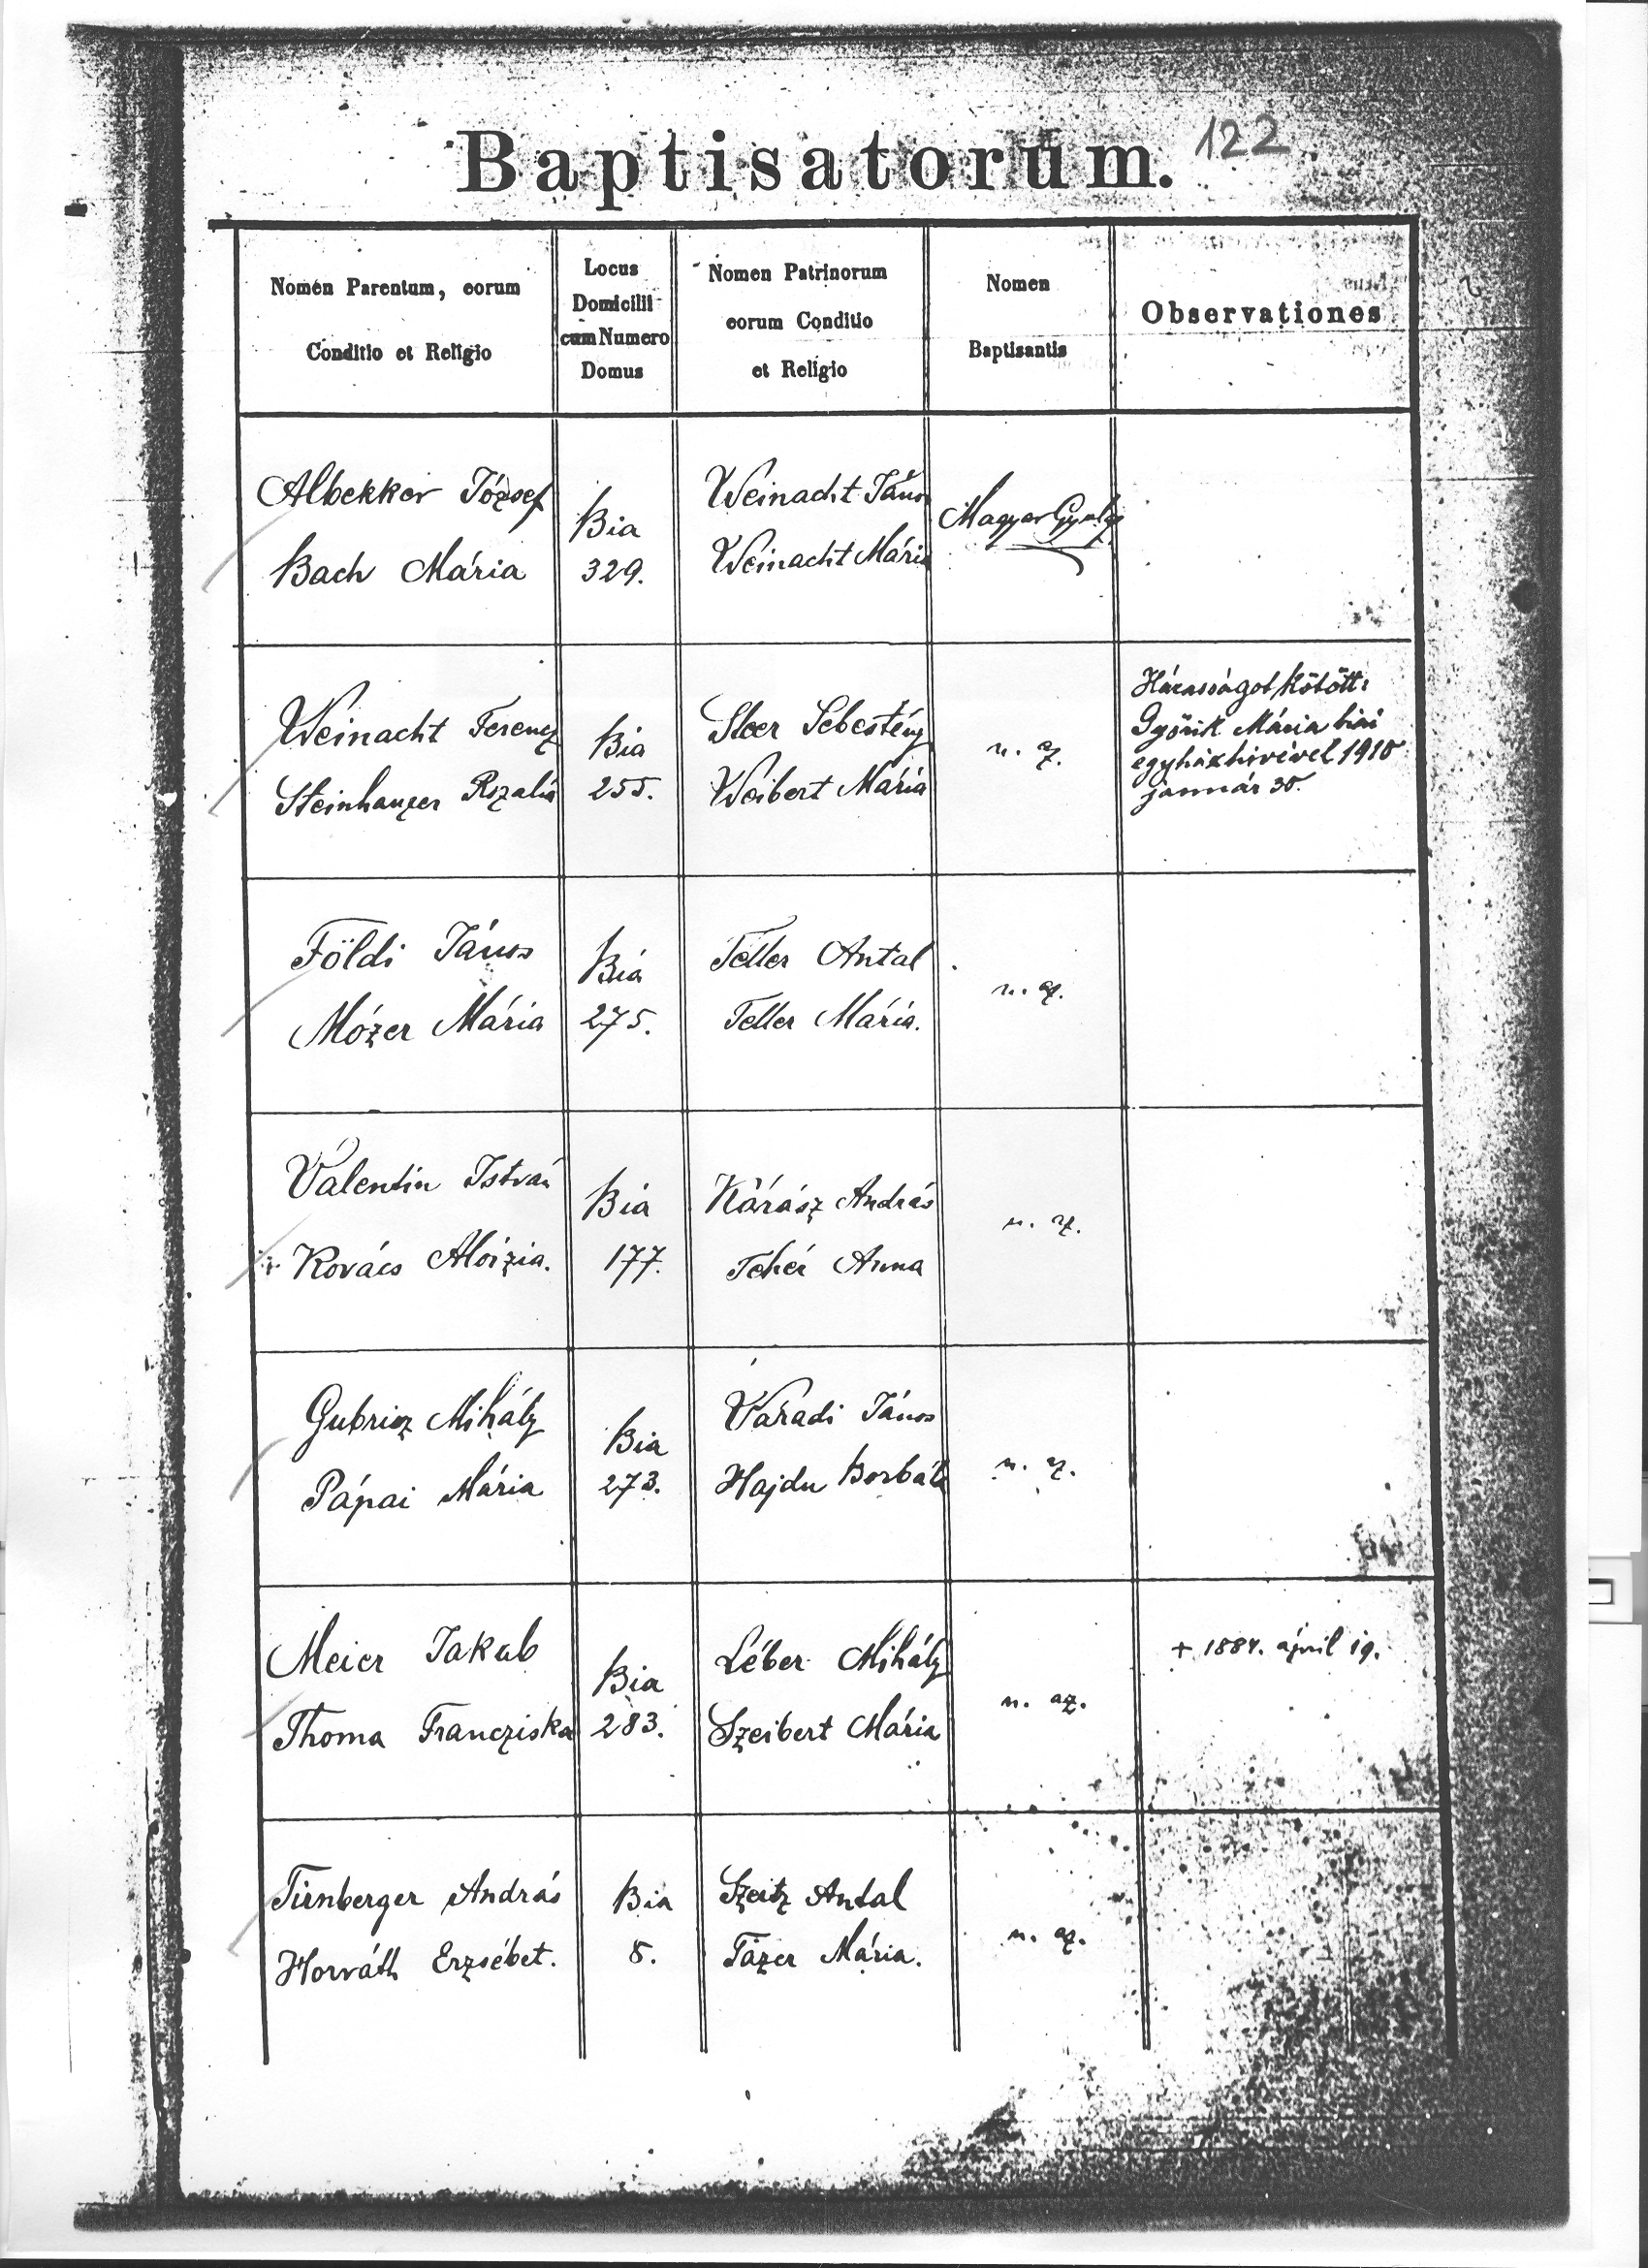 Baptisatorum. 122
Nomen Parentum, eorum
Conditio et Religio
Locus
Domicilii
cum Numero
Domus
Nomen Patrinorum
eorum Conditio
et Religio
Nomen
Baptisantis
Observationes
Albekker József
Bach Mária
Bia
329.
Weinacht János
Weinacht Mária
Magyar Gyula
Weinacht Ferencz
Steinhauzer Rozalia
Bia
255.
Sebestény
Weibert Mária
u. a.
Házasságot kötött:
Győrik Mária biai
egyházhivével 1910
január 30.
Földi János
Mózer Mária
Bia
275.
Teller Antal
Teller Mária.
u. az.
Valentin István
Kovács Aloizia.
Bia
177.
Kárász András
Fehér Anna
u. az.
Gubricz Mihály
Pápai Mária
Bia
273.
Váradi János
Hajdu Borbála
u. az.
Meier Jakab
Thoma Francziska
Bia
283.
Léber Mihály
Szeibert Mária
u. az.
+ 1884. ápril 19.
Tirnberger András
Horváth Erzsébet.
Bia
8.
Szeitz Antal
Tázer Mária.
u. az.